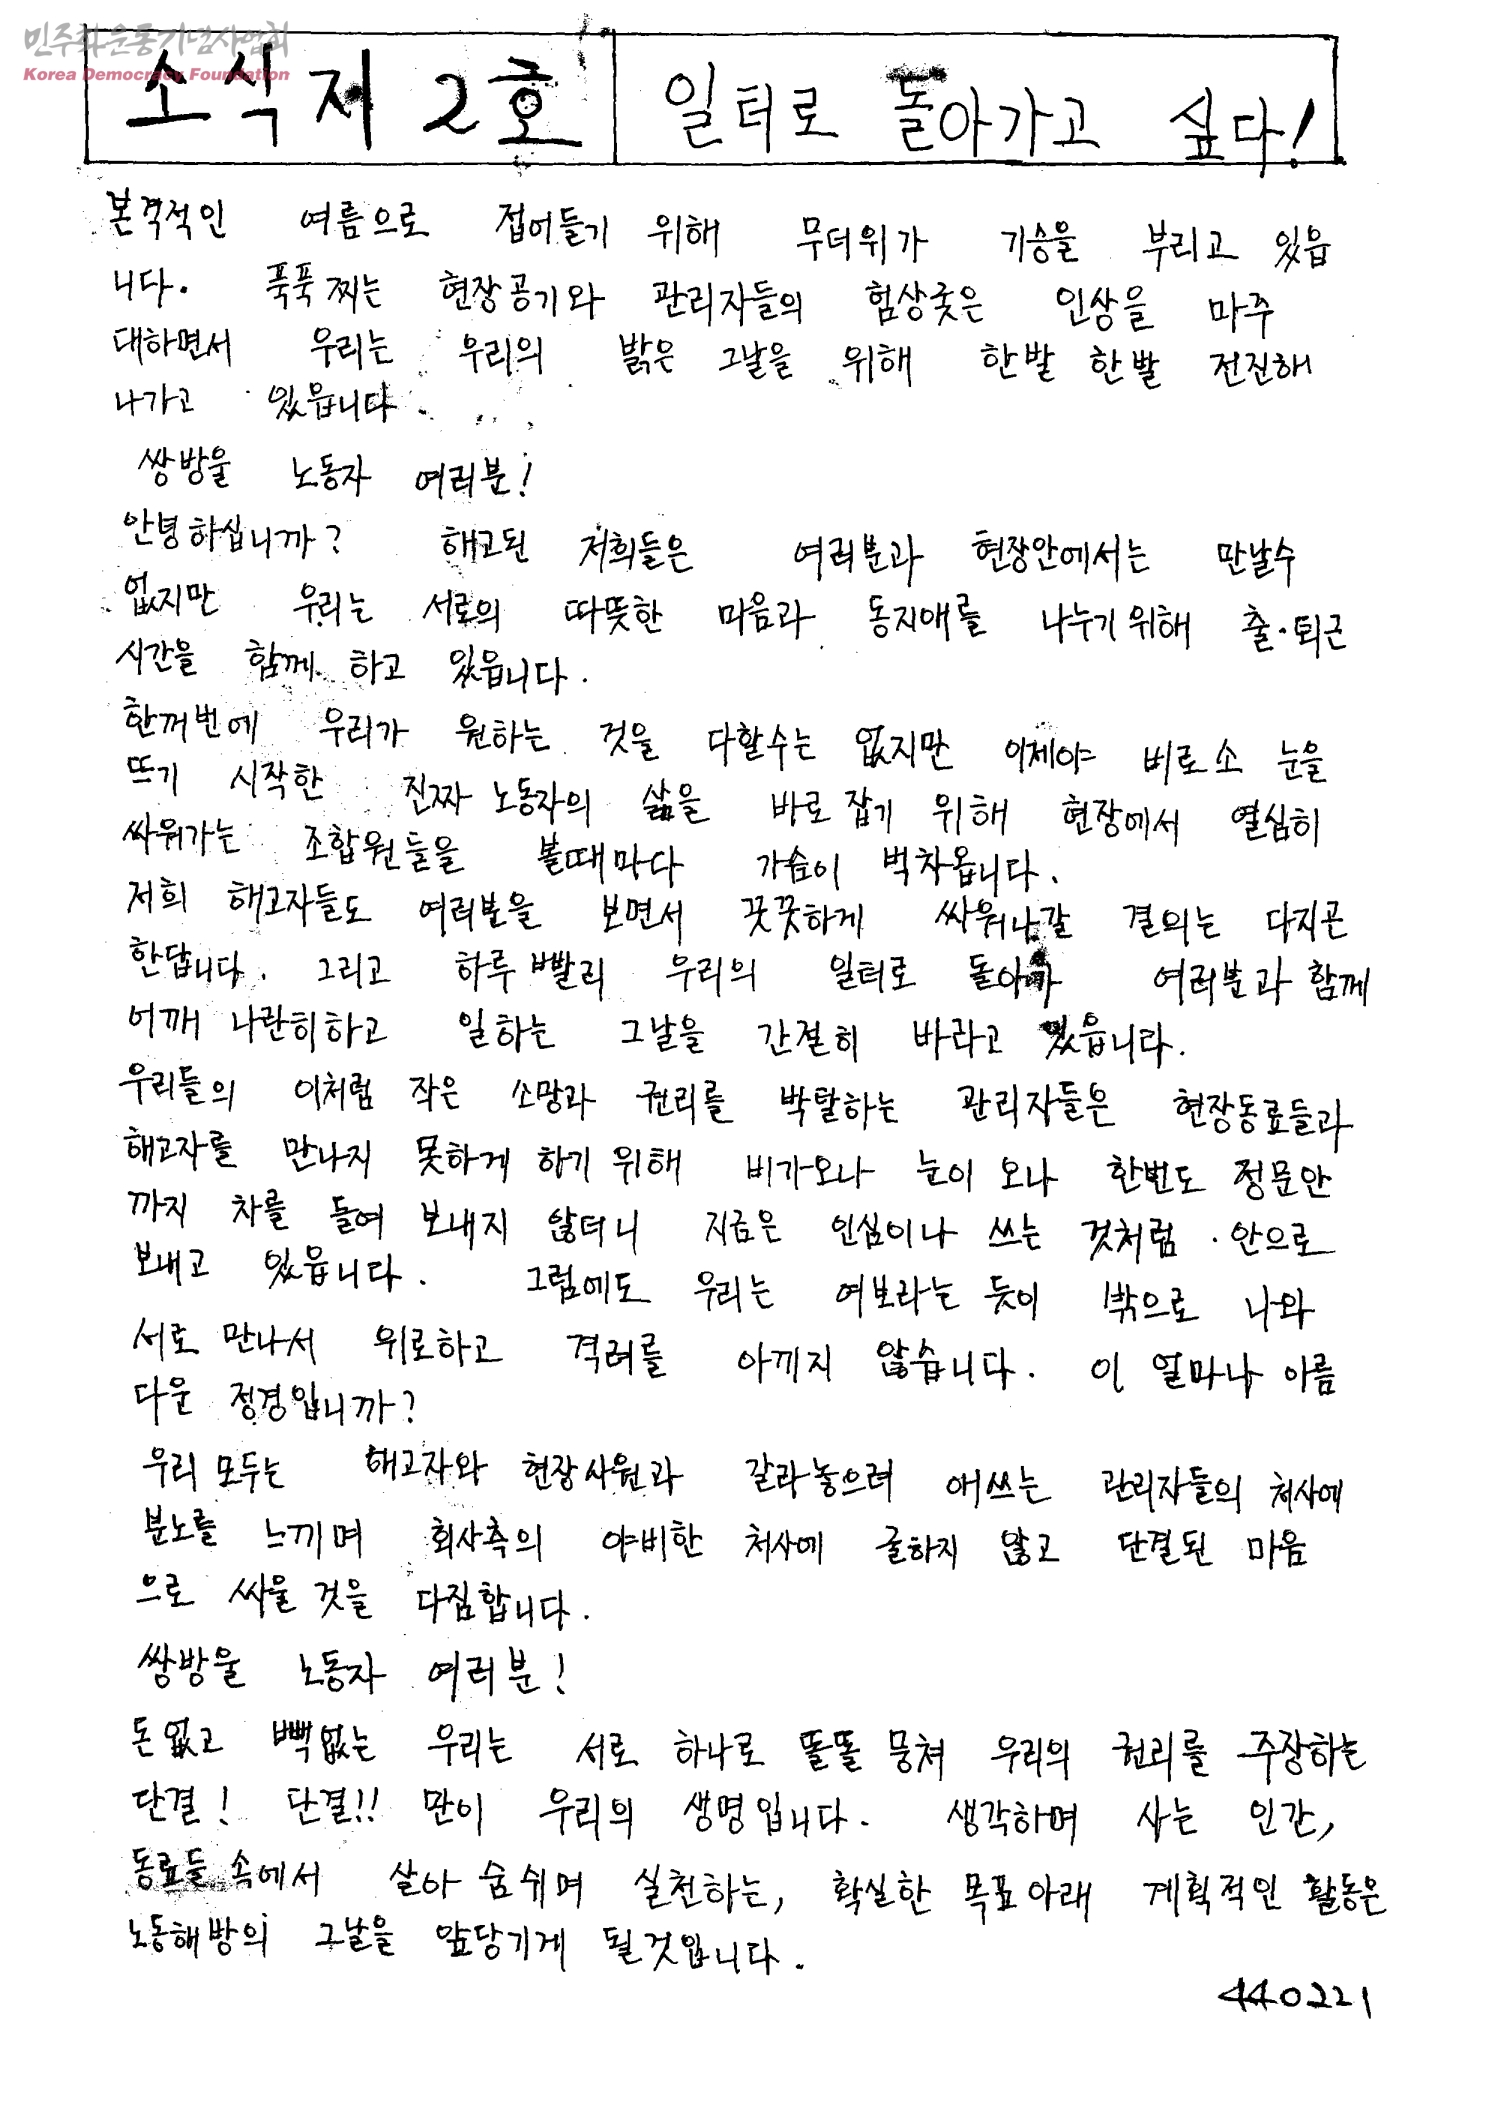 민주화운동기념사업회
Korea Democracy Foundation
소식지 2호 일터로 돌아가고 싶다!
본격적인 여름으로 접어들기 위해 무더위가 기승을 부리고 있읍
니다. 푹푹찌는 현장공기와 관리자들의 험상궂은 인상을 마주
대하면서 우리는 우리의 밝은 그날을 위해 한발 한발 전진해
나가고 있읍니다.
쌍방울 노동자 여러분!
안녕하십니까? 해고된 저희들은 여러분과 현장안에서는 만날수
없지만 우리는 서로의 따뜻한 마음과 동지애를 나누기위해 출·퇴근
시간을 함께 하고 있읍니다.
한꺼번에 우리가 원하는 것을 다할수는 없지만 이제야 비로소 눈을
뜨기 시작한 진짜 노동자의 삶을 바로잡기 위해 현장에서 열심히
싸워가는 조합원들을 볼때마다 가슴이 벅차옵니다.
저희 해고자들도 여러분을 보면서 꿋꿋하게 싸워나갈 결의는 다지곤
한답니다. 그리고 하루빨리 우리의 일터로 돌아가 여러분과 함께
어깨 나란히하고 일하는 그날을 간절히 바라고 있읍니다.
우리들의 이처럼 작은 소망과 권리를 박탈하는 관리자들은 현장동료들과
해고자를 만나지 못하게 하기 위해 비가오나 눈이 오나 한번도 정문안
까지 차를 들여 보내지 않더니 지금은 인심이나 쓰는 것처럼 안으로
보내고 있읍니다. 그럼에도 우리는 여보라는 듯이 밖으로 나와
서로 만나서 위로하고 격려를 아끼지 않습니다. 이 얼마나 아름
다운 정경입니까?
우리 모두는 해고자와 현장사원과 갈라놓으려 애쓰는 관리자들의 처사에
분노를 느끼며 회사측의 야비한 처사에 굴하지 않고 단결된 마음
으로 싸울 것을 다짐합니다.
쌍방울 노동자 여러분!
돈없고 빽없는 우리는 서로 하나로 똘똘 뭉쳐 우리의 권리를 주장하는
단결! 단결!! 만이 우리의 생명입니다. 생각하며 사는 인간,
동료들 속에서 살아 숨쉬며 실천하는, 확실한 목표아래 계획적인 활동은
노동해방의 그날을 앞당기게 될것입니다.
440221